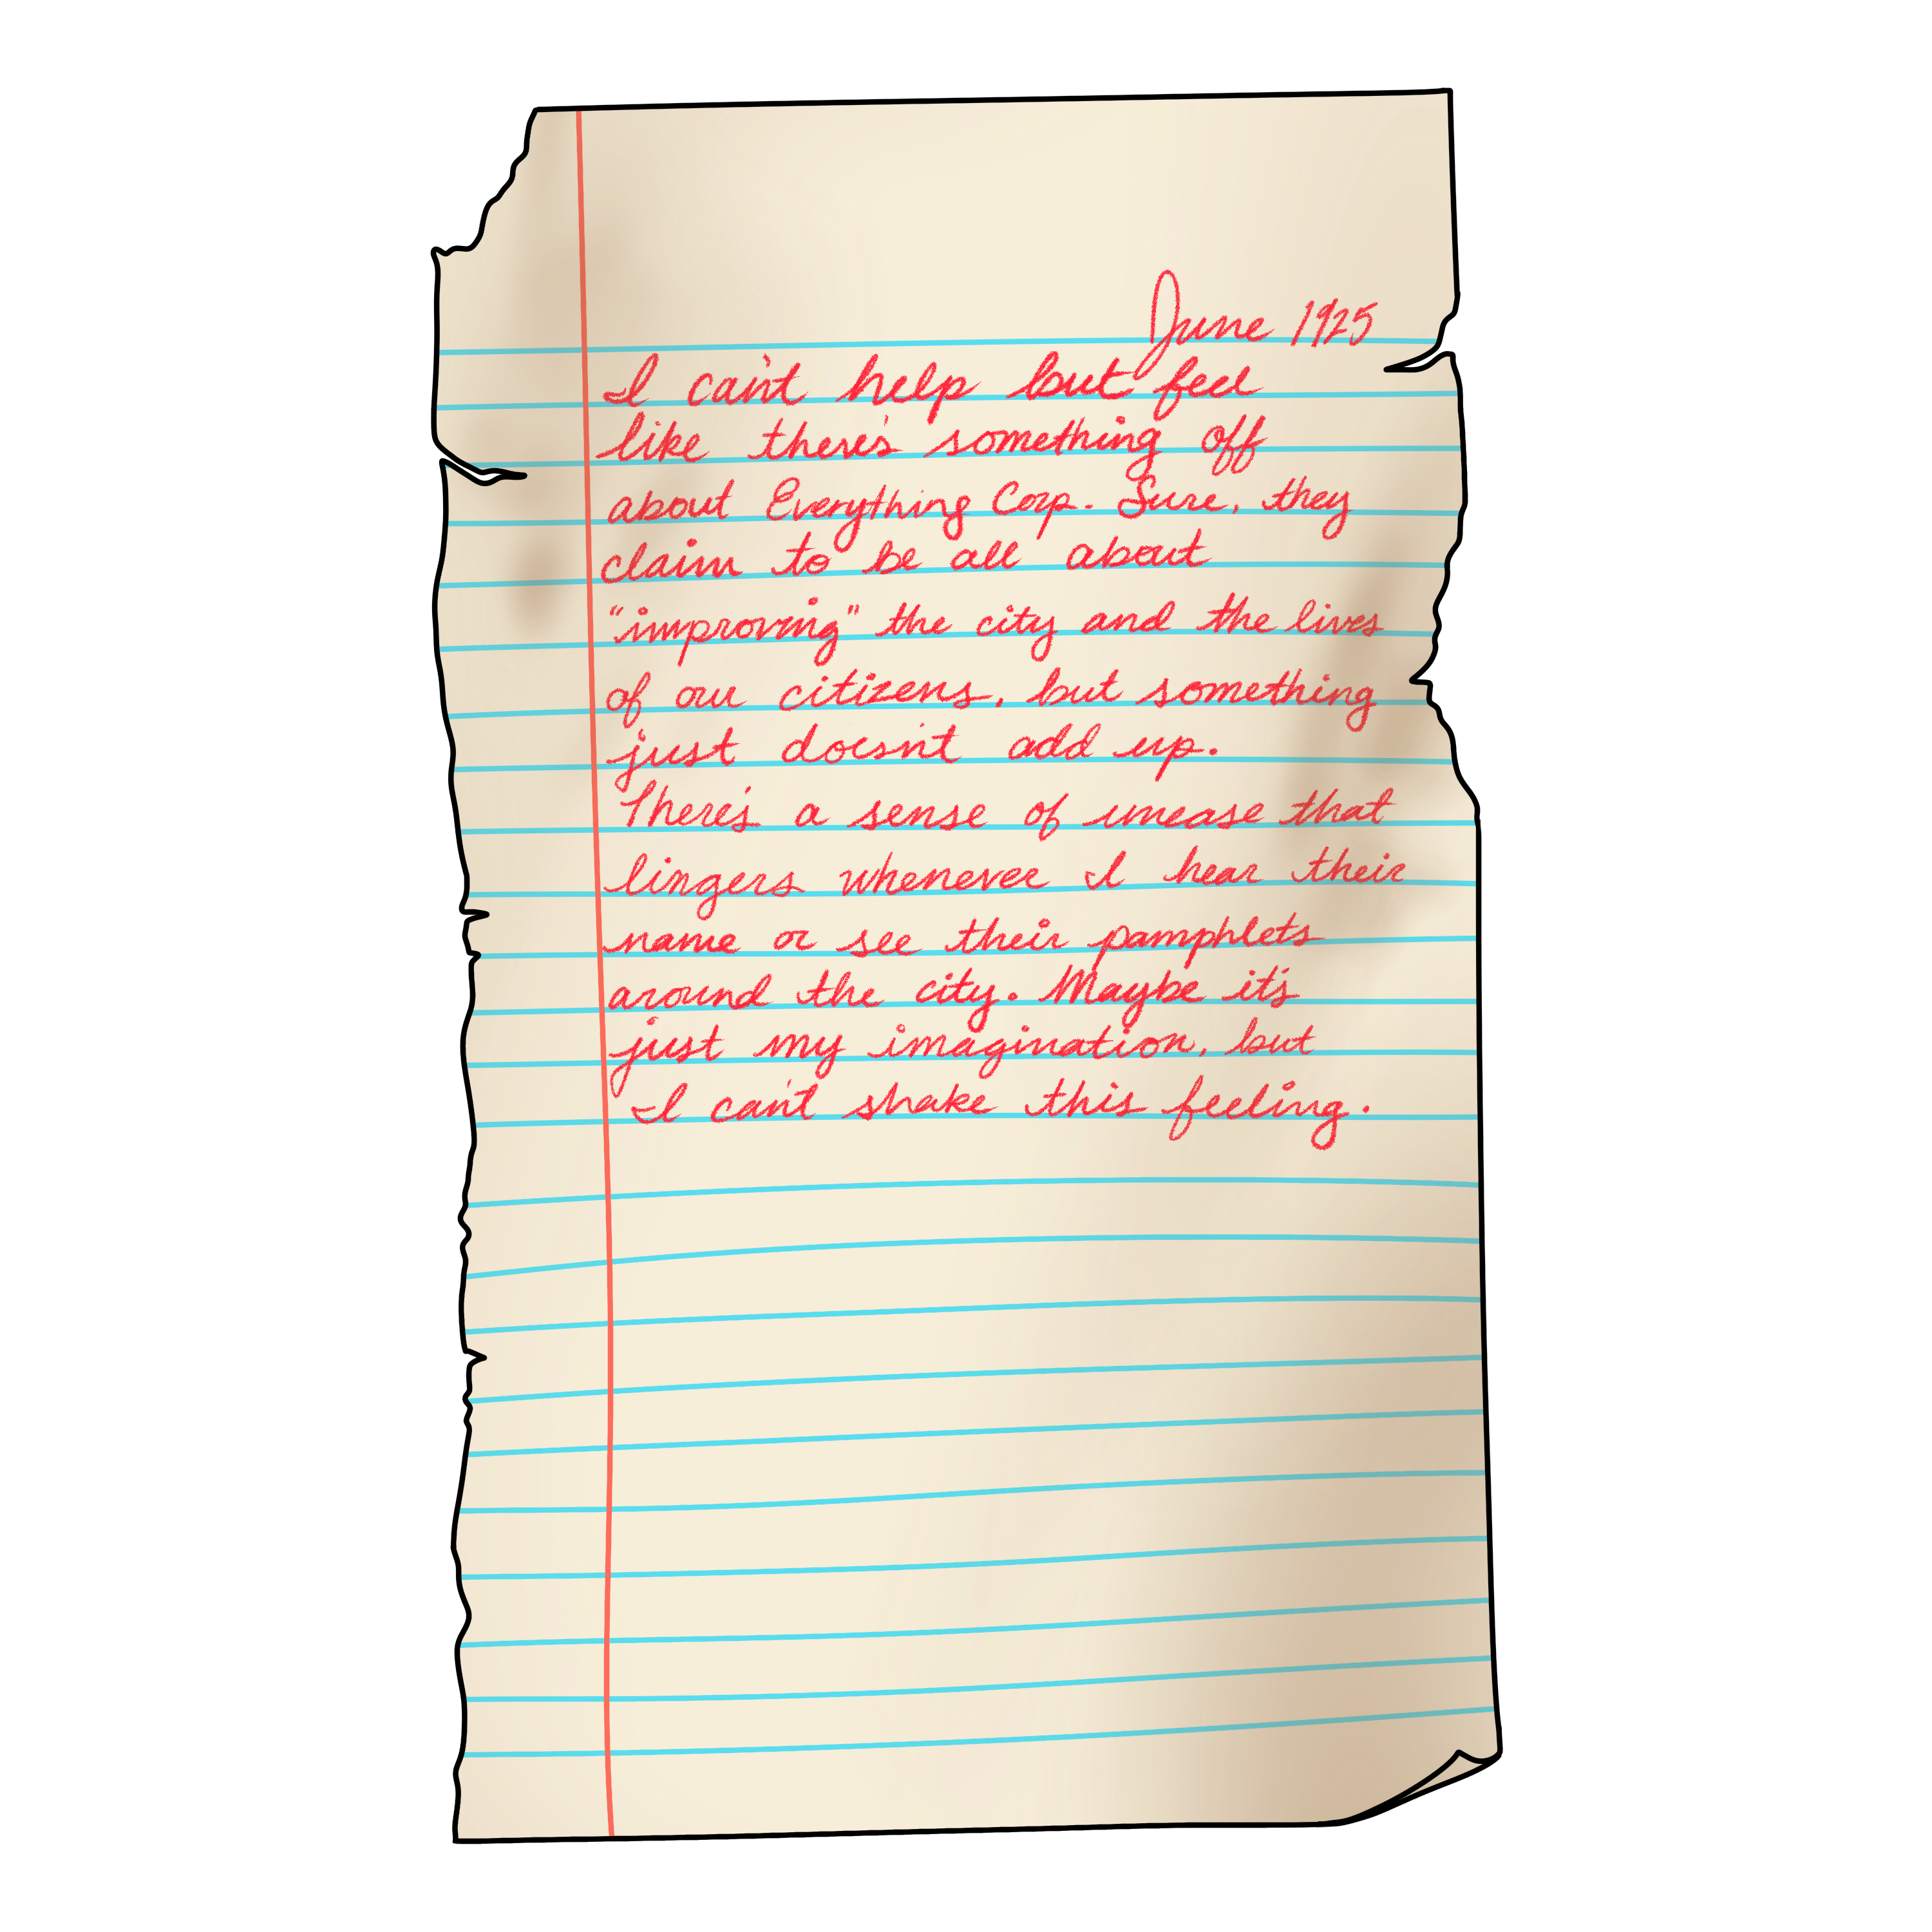 June 1925
I can't help but feel
like there's something off
about Everything Corp. Sure, they
claim to be all about
"improving" the city and the lives
of our citizens, but something
just doesn't add up.
There's a sense of unease that
lingers whenever I hear their
name or see their pamphlets
around the city. Maybe it's
just my imagination, but
I can't shake this feeling.